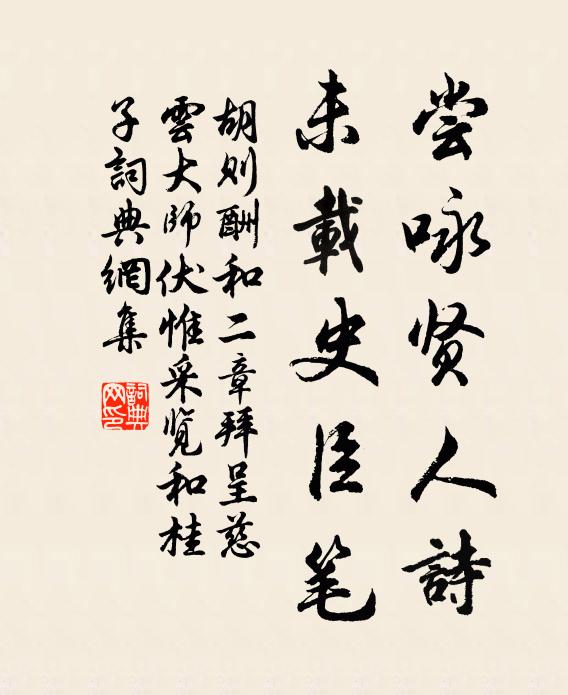 尝咏贤人詩
未載史臣笔
胡则酬和二章拜呈慈
雲大师伏惟采览和桂
子詞典網集
詞典网印